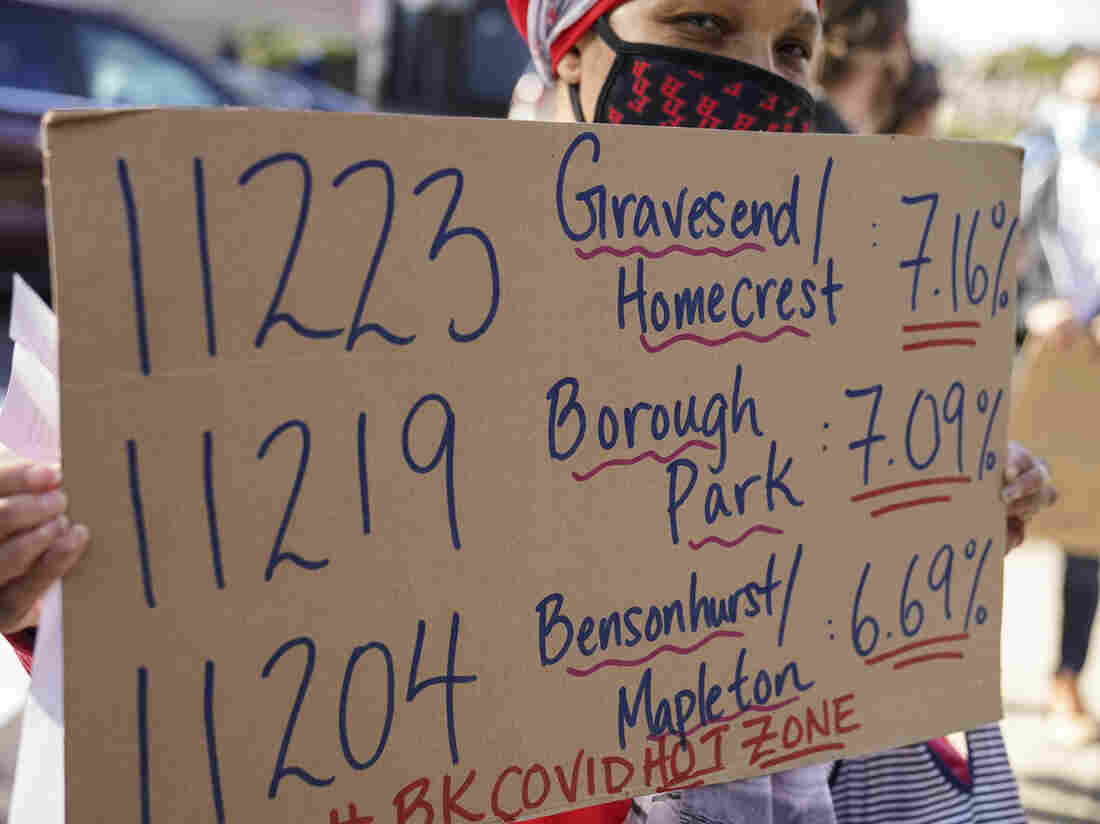 11223 Gravesend/ : 7.16%
Homecrest
11219 Borough : 7.09%
Park
11204 Bensonhurst/ : 6.69%
Mapleton
#BKCOVIDHOT ZONE